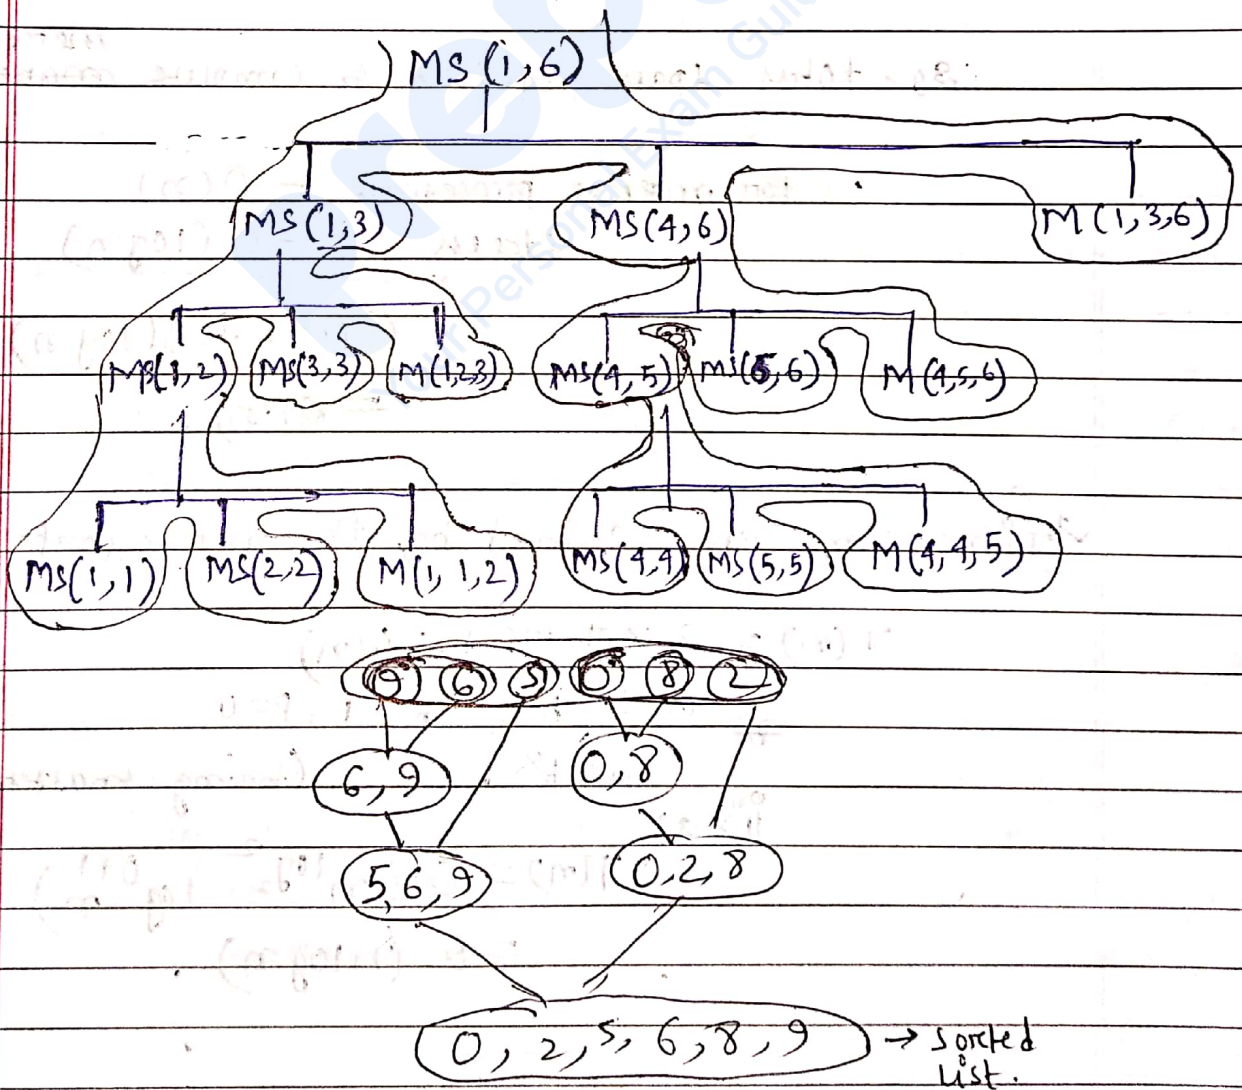 MS(1,6)
MS(1,3) MS(4,6) M(1,3,6)
MS(1,2) MS(3,3) M(1,2,3) MS(4,5) MS(6,6) M(4,5,6)
MS(1,1) MS(2,2) M(1,1,2) MS(4,4) MS(5,5) M(4,4,5)
9 6 5 0 8 2
6,9 0,8
5,6,9 0,2,8
0, 2, 5, 6, 8, 9 → sorted
List.